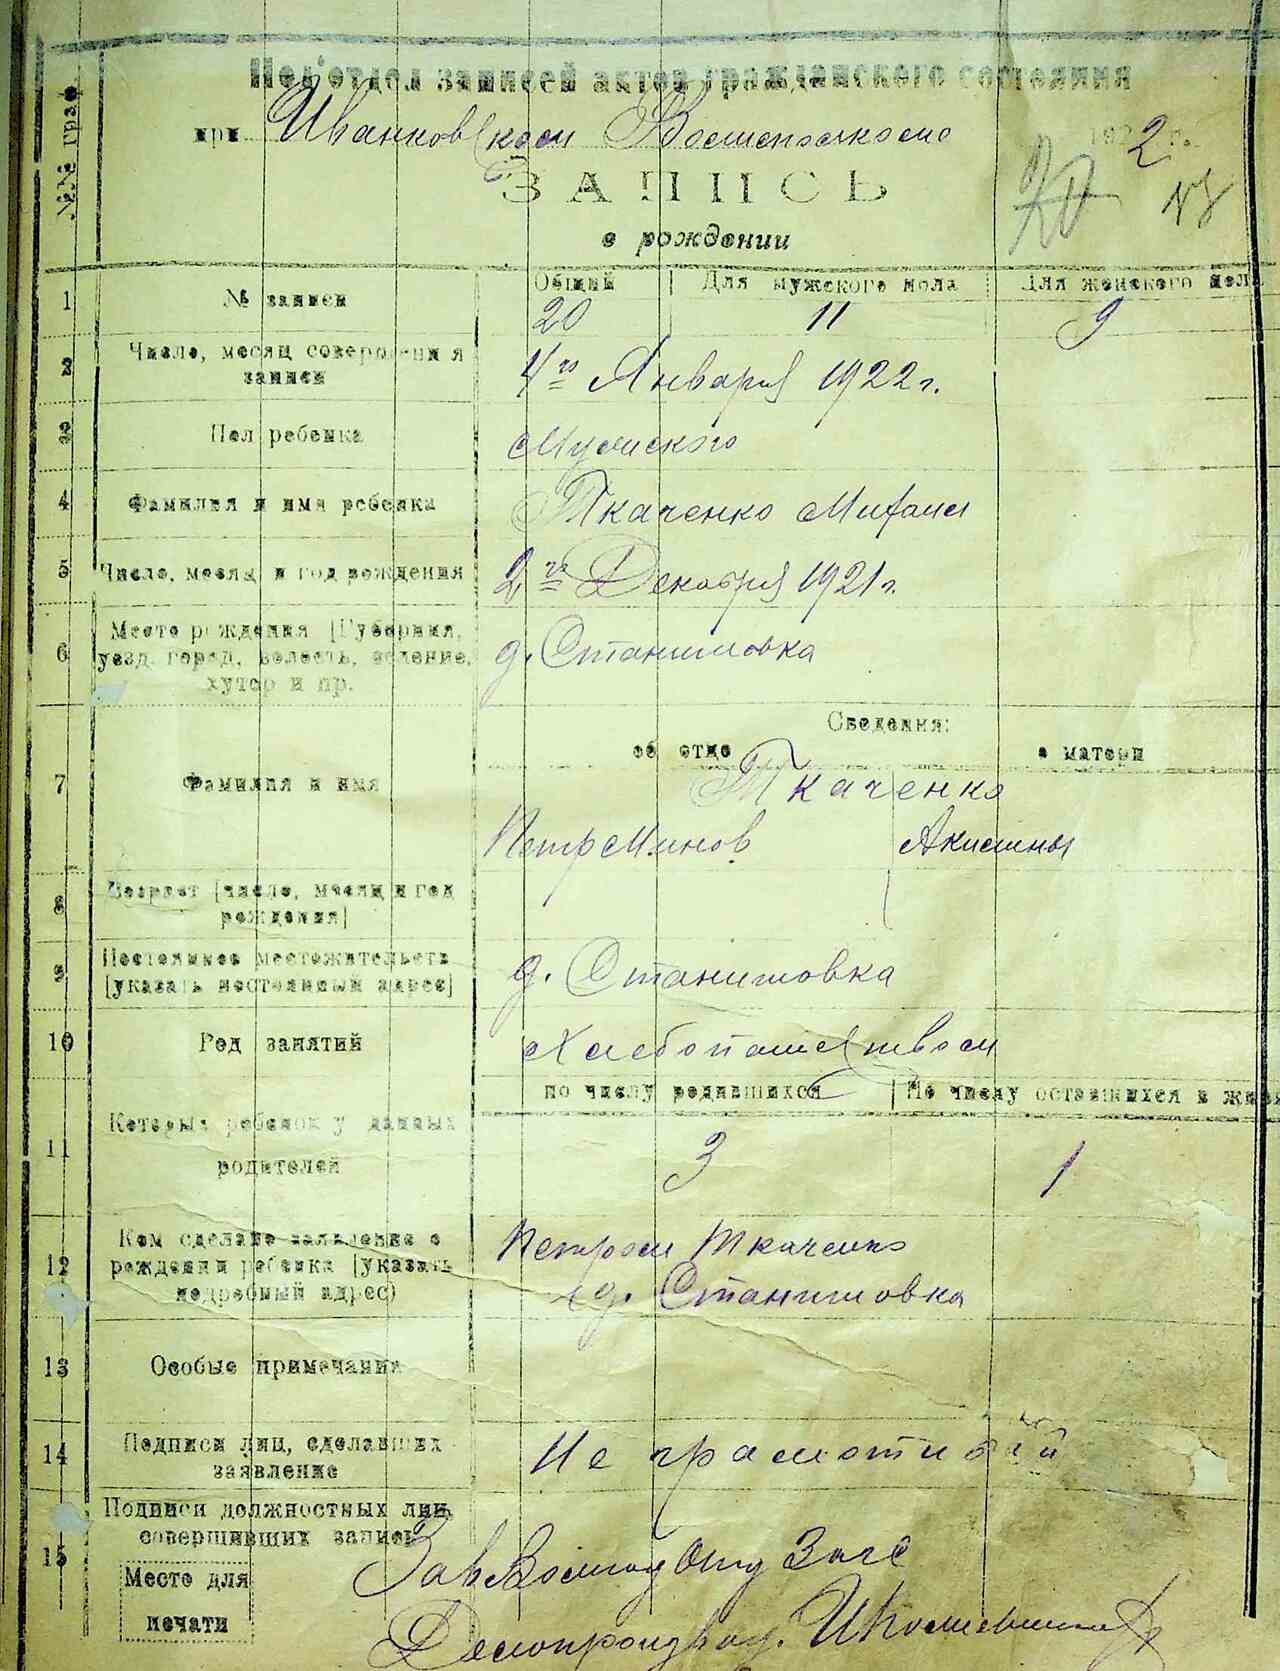 №№ граф
Под'отдел записей актов гражданского состояния
при Ивановском Волисполкоме 1922 г.
20
ЗАПИСЬ
о рождении
1 № записи Общий Для мужского пола Для женского пола
20 11 9
2 Число, месяц совершения записи 4го Января 1922 г.
3 Пол ребенка Мужского
4 Фамилия и имя ребенка Ткаченко Михаил
5 Число, месяц и год рождения 2го Декабря 1921 г.
6 Место рождения [Губерния, уезд, город, волость, селение, хутор и пр. д. Станишовка
Сведения:
об отце о матери
7 Фамилия и имя Ткаченко
Петр Минов Акилины
8 Возраст [число, месяц и год рождения]
9 Постоянное местожительств [указать постоянный адрес] д. Станишовка
10 Род занятий Хлебопашеством
по числу родившихся По числу оставшихся в жив
11 Которым ребенок у данных родителей 3 1
12 Кем сделано заявление о рождении ребенка [указать подробный адрес) Петром Ткаченко
д. Станишовка
13 Особые примечания
14 Подписи лиц, сделавших заявление Не грамотный
15 Подписи должностных лиц, совершивших запись
Зав Отд Загс
Место для печати
Делопроизвод.